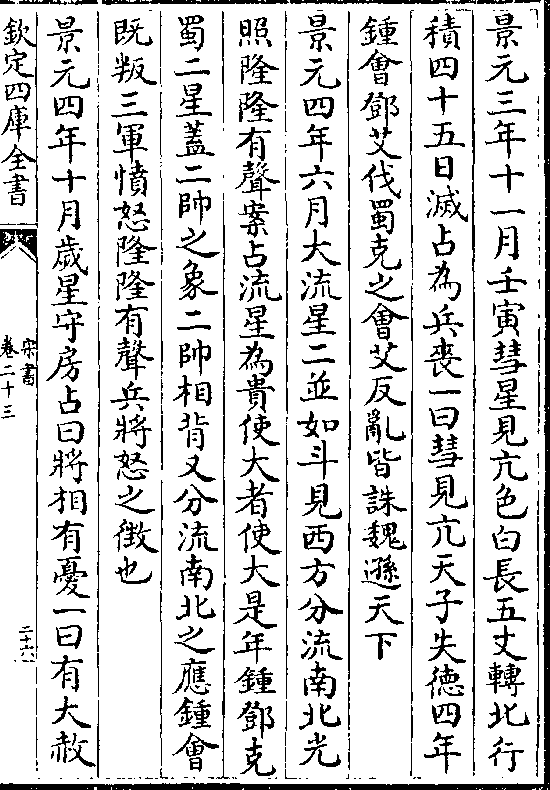 景元三年十一月壬寅彗星見亢色白長五丈轉北行
積四十五日滅占為兵喪一曰彗見亢天子失德四年
鍾會鄧艾伐蜀克之會艾反亂皆誅魏遜天下
景元四年六月大流星二並如斗見西方分流南北光
照隆隆有聲案占流星為貴使大者使大是年鍾鄧克
蜀二星蓋二帥之象二帥相背又分流南北之應鍾會
既叛三軍憤怒隆隆有聲兵將怒之徴也
景元四年十月歲星守房占曰將相有憂一曰有大赦
欽定四庫全書
宋書
卷二十三
二十六